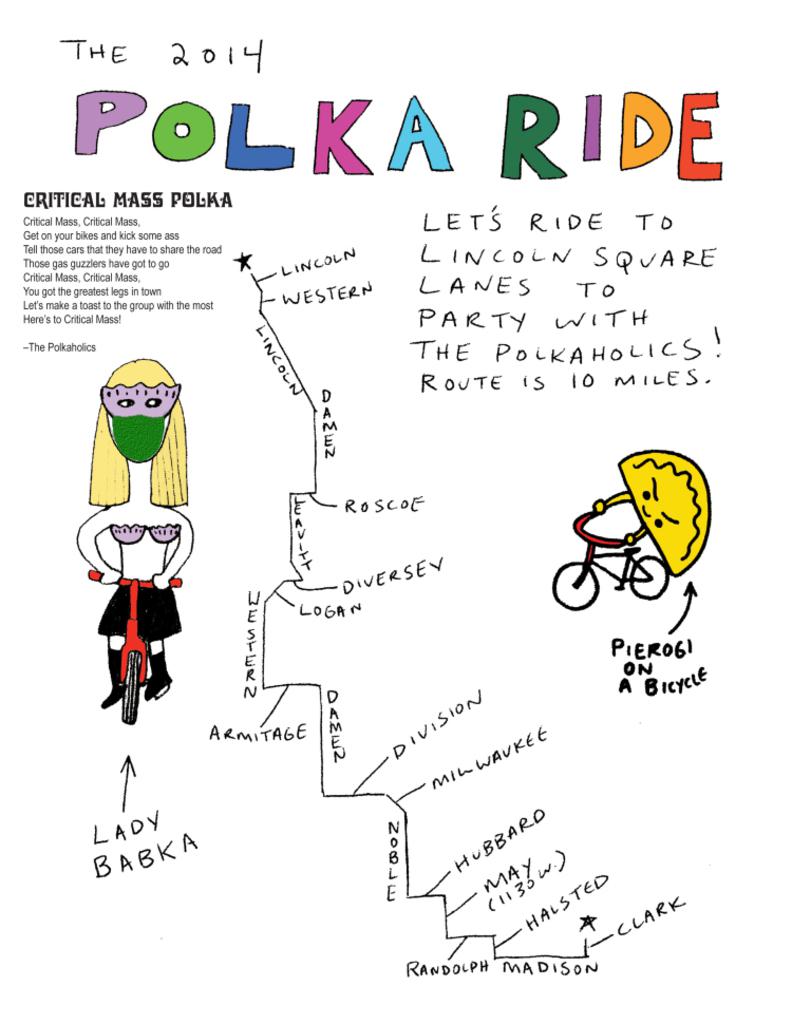 THE 2014
POLKA RIDE
CRITICAL MASS POLKA
Critical Mass, Critical Mass,
Get on your bikes and kick some ass
Tell those cars that they have to share the road
Those gas guzzlers have got to go
Critical Mass, Critical Mass,
You got the greatest legs in town
Let's make a toast to the group with the most
Here's to Critical Mass!
–The Polkaholics
LET'S RIDE TO
LINCOLN SQUARE
LANES TO
PARTY WITH
THE POLKAHOLICS!
ROUTE IS 10 MILES.
LINCOLN
WESTERN
LINCOLN
DAMEN
ROSCOE
LEAVITT
DIVERSEY
LOGAN
WESTERN
ARMITAGE
DAMEN
DIVISION
MILWAUKEE
NOBLE
HUBBARD
MAY
(1130 W.)
HALSTED
CLARK
RANDOLPH
MADISON
PIEROGI
ON
A BICYCLE
LADY
BABKA